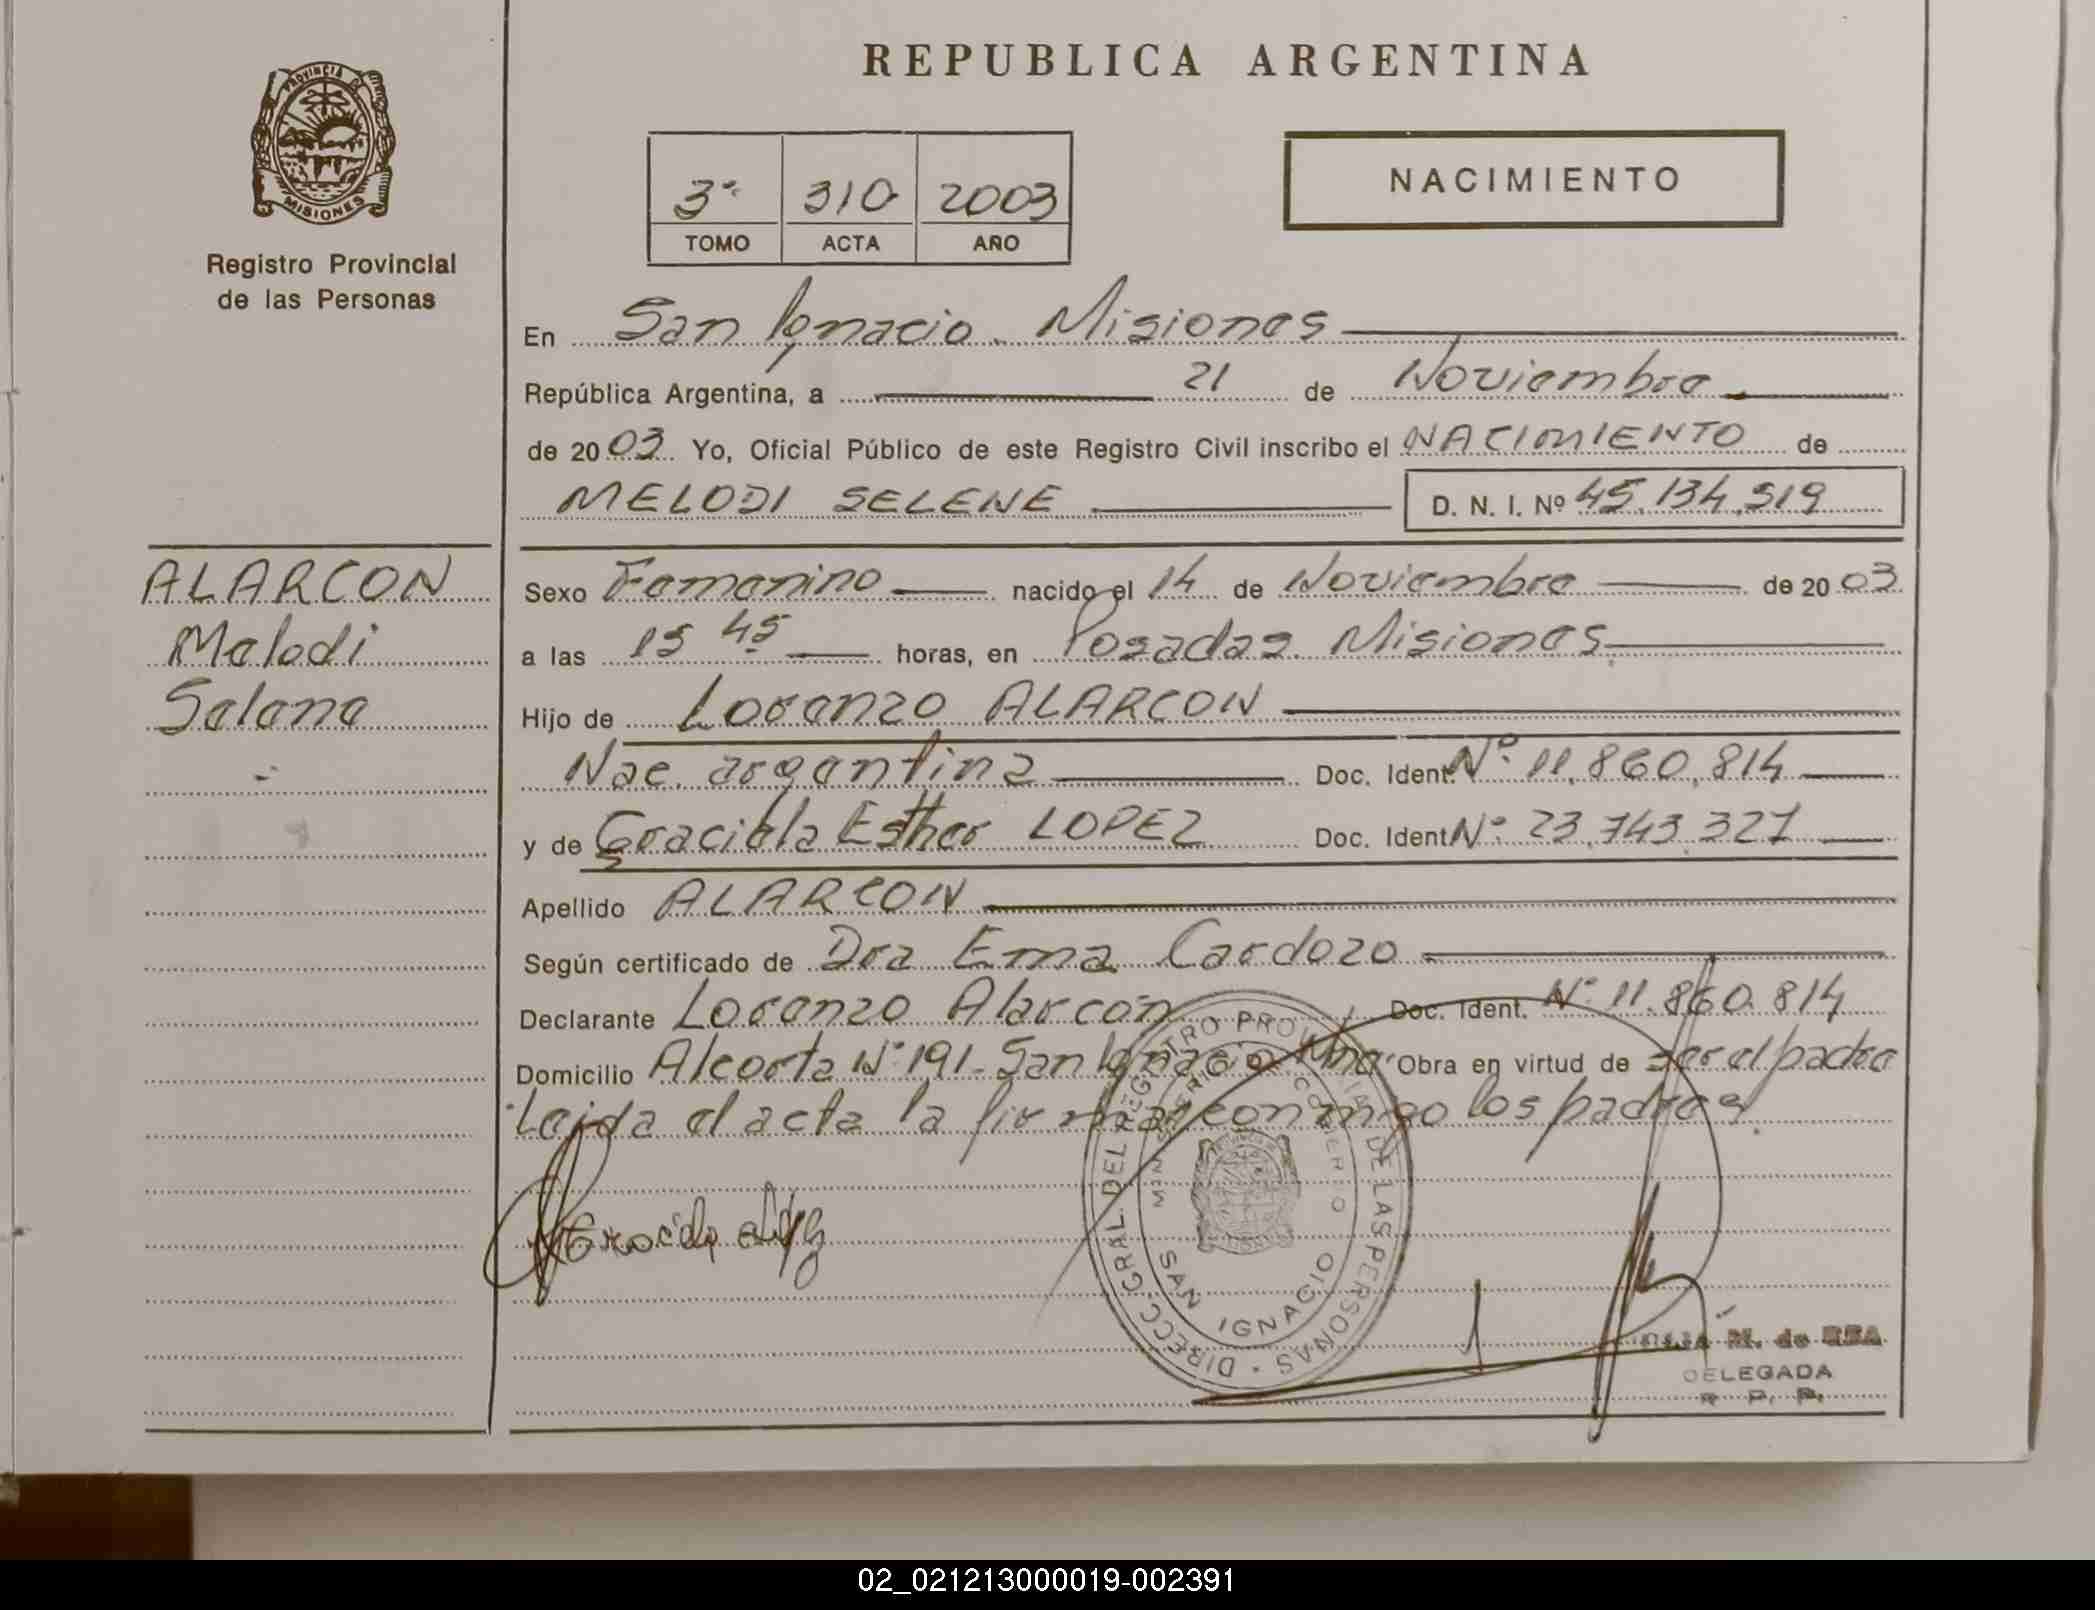 REPUBLICA ARGENTINA
PROVINCIA DE
MISIONES
Registro Provincial
de las Personas
3º 310 2003
TOMO ACTA AÑO
NACIMIENTO
En San Ignacio. Misiones
República Argentina, a 21 de Noviembre
de 2003. Yo, Oficial Público de este Registro Civil inscribo el NACIMIENTO de
MELODI SELENE D. N. I. Nº 45.134.519
ALARCON
Melodi
Selene
Sexo Femenino nacido el 14 de Noviembre de 2003
a las 15 45 horas, en Posadas. Misiones
Hijo de Lorenzo ALARCON
Nac. argentina Doc. Ident. Nº 11.860.814
y de Graciela Esther LOPEZ Doc. Ident. Nº 23.743.327
Apellido ALARCON
Según certificado de Dra Ema Cardozo
Declarante Lorenzo Alarcón Doc. Ident. Nº 11.860.814
Domicilio Alcorta Nº 191. San Ignacio Mnes Obra en virtud de ser el padre
Leida el acta la firman conmigo los padres.
DIRECC. GRAL. DEL REGISTRO PROVINCIAL DE LAS PERSONAS
MINISTERIO DE GOBIERNO
SAN IGNACIO
M. de
DELEGADA
R. P. P.
02_021213000019-002391